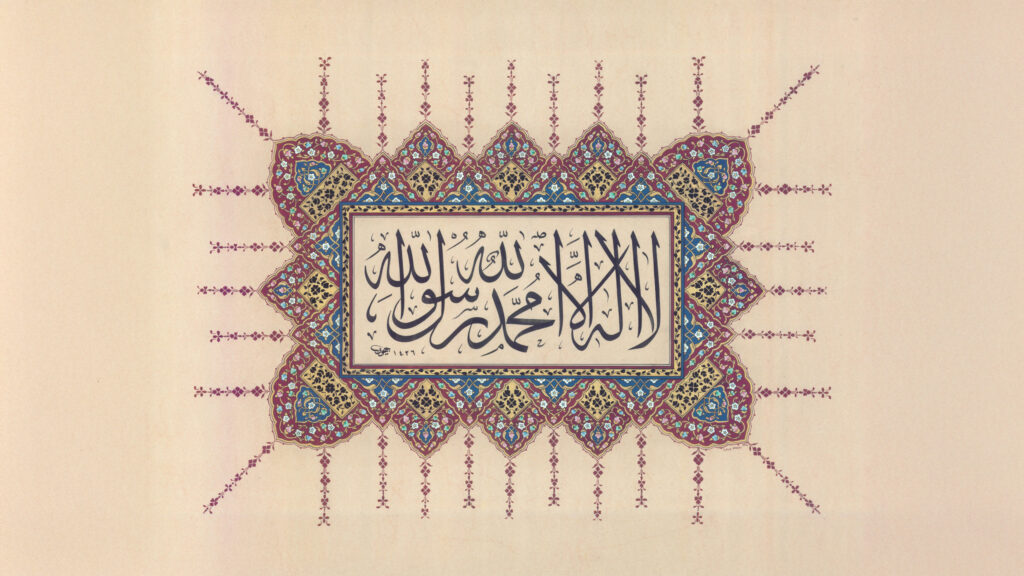 لا إله إلا الله محمد رسول الله
١٤٢٦